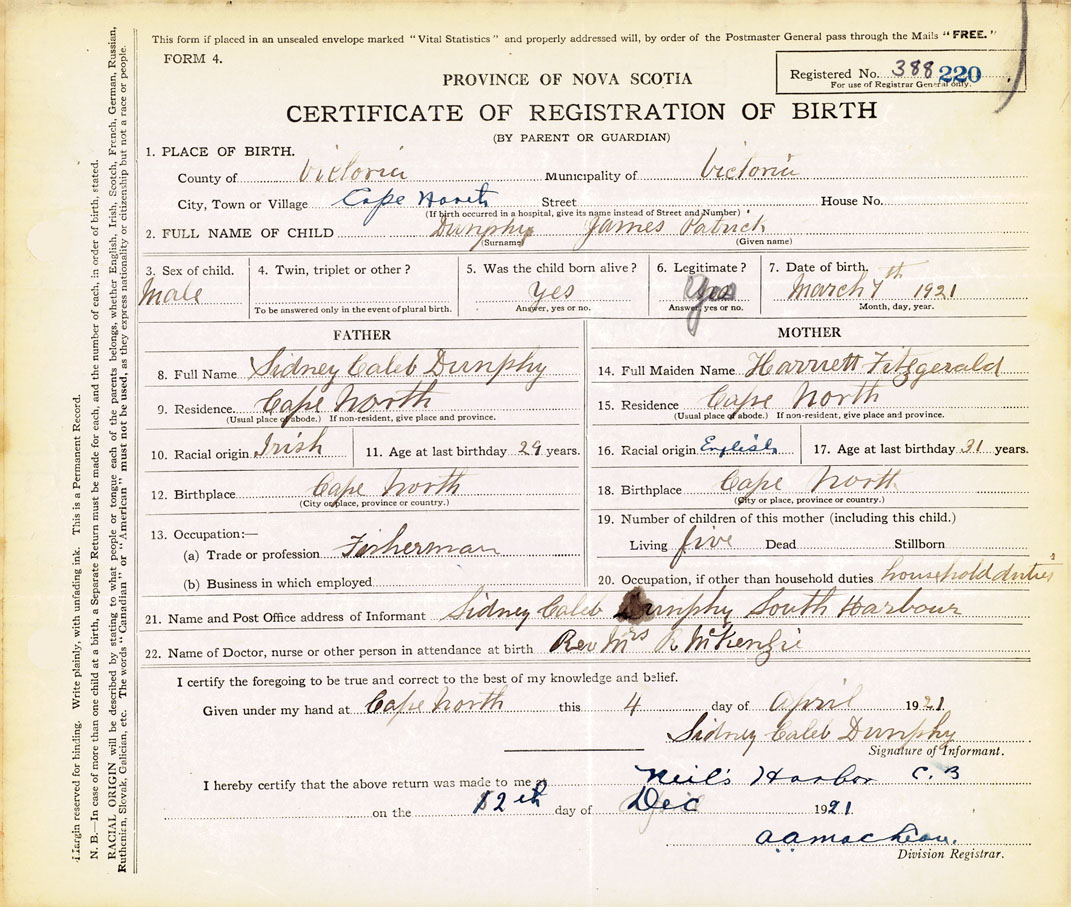 This form if placed in an unsealed envelope marked "Vital Statistics" and properly addressed will, by order of the Postmaster General pass through the Mails "FREE."
FORM 4.
Registered No. 388 220
For use of Registrar General only.
PROVINCE OF NOVA SCOTIA
CERTIFICATE OF REGISTRATION OF BIRTH
(BY PARENT OR GUARDIAN)
1. PLACE OF BIRTH.
County of Victoria Municipality of Victoria
City, Town or Village Cape North Street House No.
(If birth occurred in a hospital, give its name instead of Street and Number)
2. FULL NAME OF CHILD Dunphy James Patrick
(Surname) (Given name)
3. Sex of child. 4. Twin, triplet or other? 5. Was the child born alive? 6. Legitimate? 7. Date of birth.
Male yes yes March 7th 1921
To be answered only in the event of plural birth. Answer, yes or no. Answer, yes or no. Month, day, year.
FATHER MOTHER
8. Full Name Sidney Caleb Dunphy 14. Full Maiden Name Harriett Fitzgerald
9. Residence. Cape North 15. Residence Cape North
(Usual place of abode.) If non-resident, give place and province. (Usual place of abode.) If non-resident, give place and province.
10. Racial origin Irish 11. Age at last birthday 29 years. 16. Racial origin English 17. Age at last birthday 31 years.
12. Birthplace Cape North 18. Birthplace Cape North
(City or place, province or country.) (City or place, province or country.)
13. Occupation:— 19. Number of children of this mother (including this child.)
(a) Trade or profession Fisherman Living five Dead Stillborn
(b) Business in which employed 20. Occupation, if other than household duties household duties
21. Name and Post Office address of Informant Sidney Caleb Dunphy South Harbour
22. Name of Doctor, nurse or other person in attendance at birth Rev Mrs R McKenzie
I certify the foregoing to be true and correct to the best of my knowledge and belief.
Given under my hand at Cape North this 4 day of April 1921
Sidney Caleb Dunphy
Signature of Informant.
I hereby certify that the above return was made to me at Neil's Harbor C.B
on the 12th day of Dec 1921
Division Registrar.
Margin reserved for binding. Write plainly, with unfading ink. This is a Permanent Record.
N. B.—In case of more than one child at a birth, a Separate Return must be made for each, and the number of each, in order of birth, stated.
RACIAL ORIGIN will be described by stating to what people or tongue each of the parents belongs, whether English, Irish, Scotch, French, German, Russian,
Ruthenian, Slovak, Galician, etc. The words "Canadian" or "American" must not be used, as they express nationality or citizenship but not a race or people.